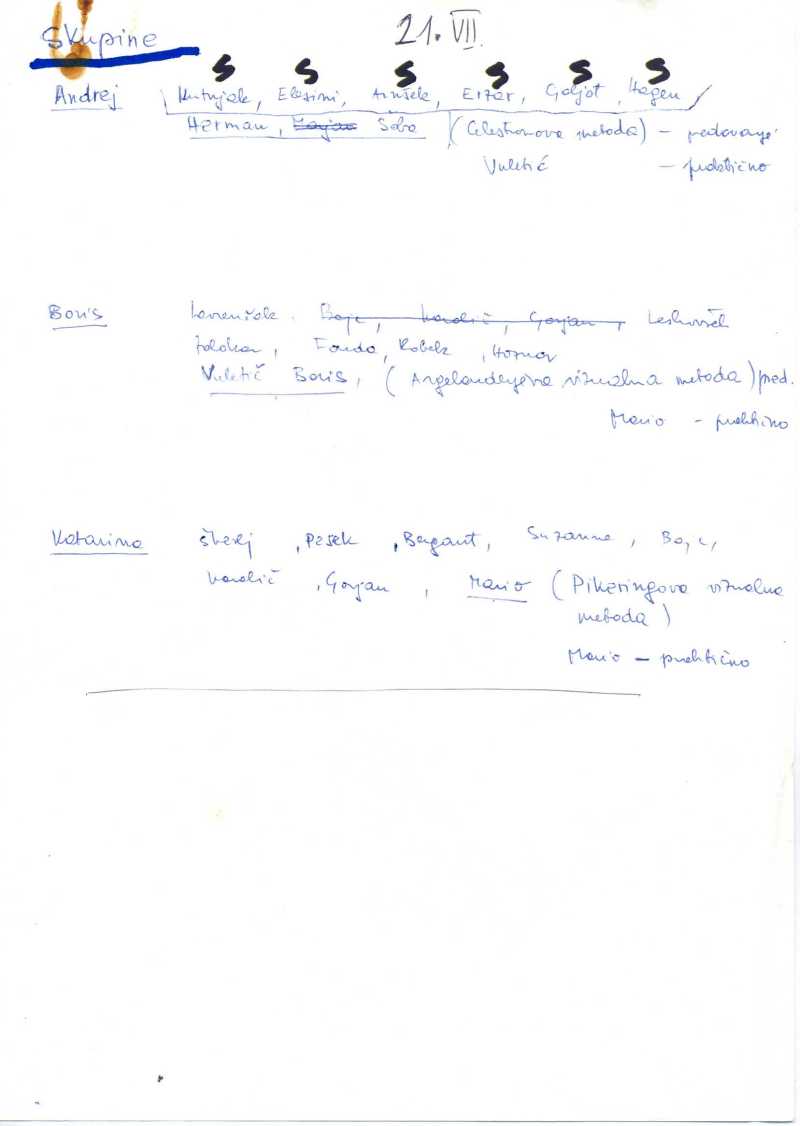 Skupine 21. VII.
S S S S S S
Andrej Kutnjak, Eleršini, Arnšek, Eržar, Galjot, Hagen
Herman, Sebo (Celestronova metoda) – predavanje
Vuletić – praktično
Boris Lovrenčak. Bajc, Karolič, Gorjan, Leskovšek
Zalokar, Fonda, Kobek
Vuletič Boris, (Argelanderjeva vizualna metoda) pred.
Mario – praktično
Katarina Škerj, Pesek, Bergant, Suzanna, Bajc,
Karolič, Gorjan, Mario (Pikeringova vizualna
metoda)
Mario – praktično